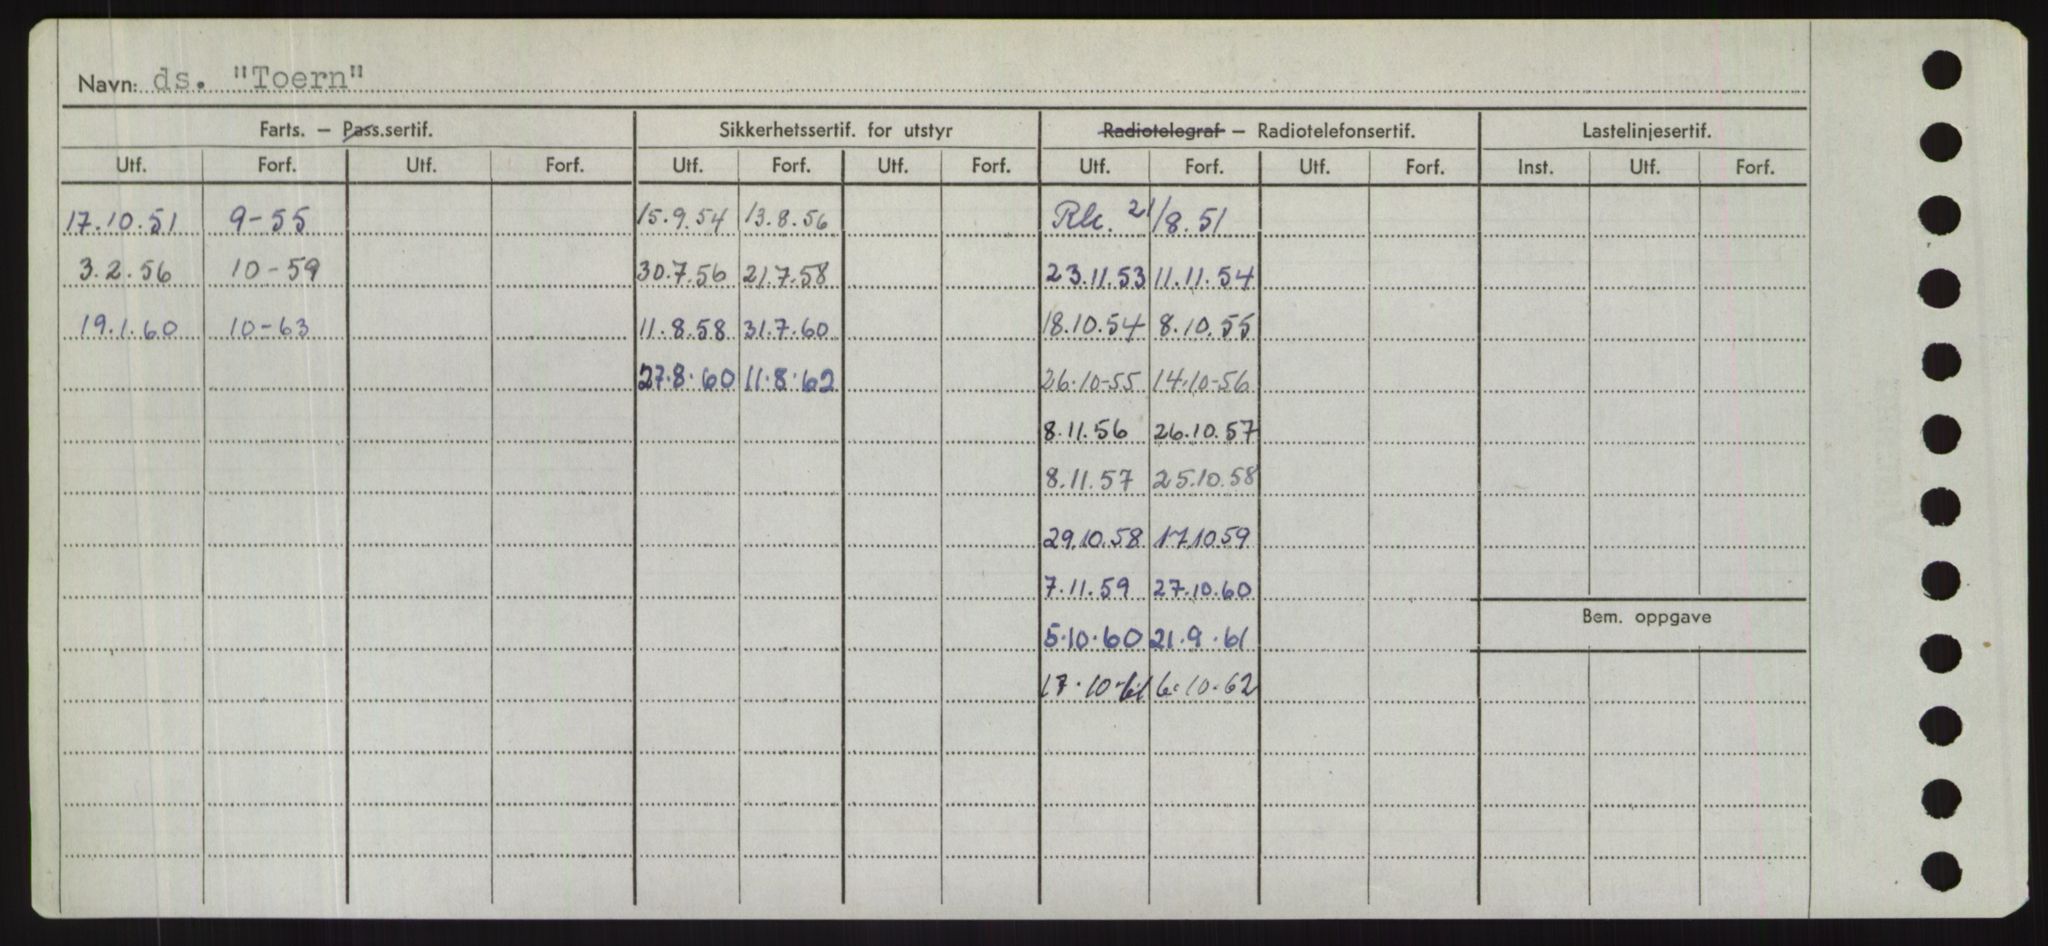 Navn: ds. "Toern"
Farts. – Pass.sertif. Sikkerhetssertif. for utstyr Radiotelegraf – Radiotelefonsertif. Lastelinjesertif.
Utf. Forf. Utf. Forf. Utf. Forf. Utf. Forf. Utf. Forf. Utf. Forf. Inst. Utf. Forf.
17.10.51 9-55 15.9.54 13.8.56 21/8.51
3.2.56 10-59 30.7.56 21.7.58 23.11.53 11.11.54
19.1.60 10-63 11.8.58 31.7.60 18.10.54 8.10.55
27.8.60 11.8.62 26.10-55 14.10-56
8.11.56 26.10.57
8.11.57 25.10.58
29.10.58 17.10.59
7.11.59 27.10.60
Bem. oppgave
5.10.60 21.9.61
17.10.61 6.10.62